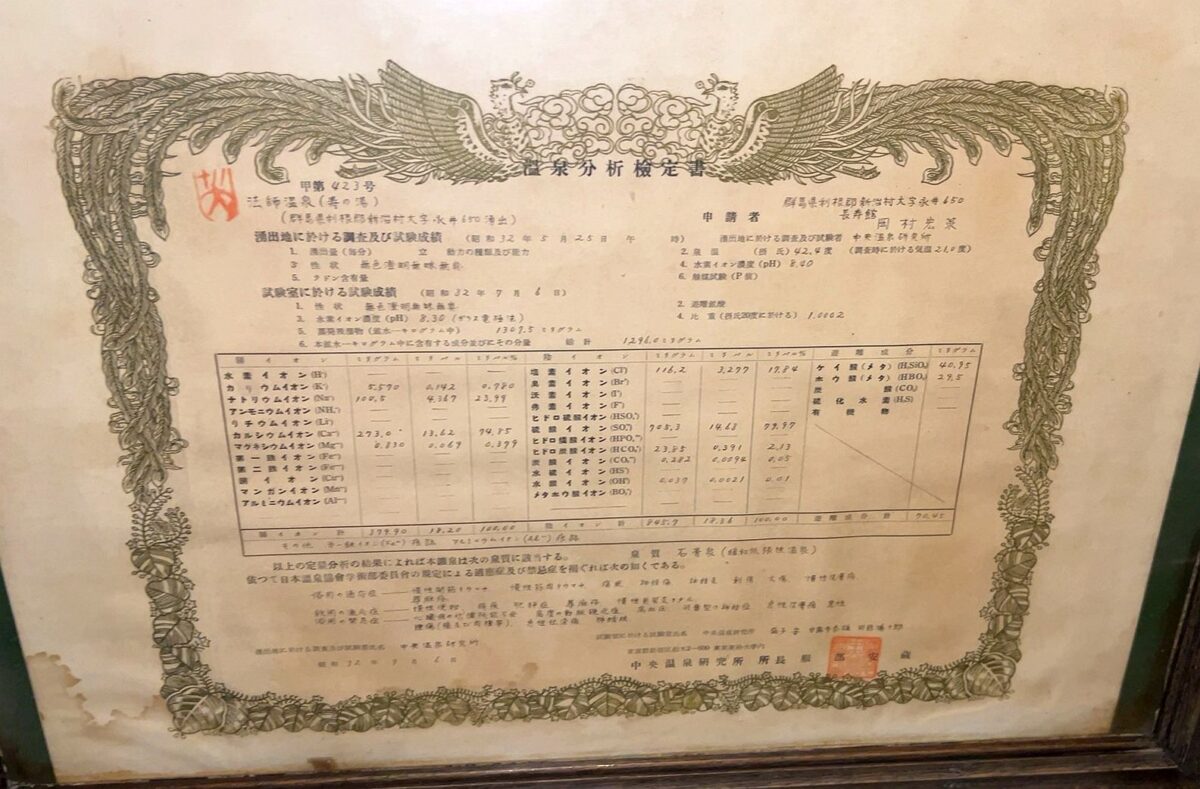 温泉分析檢定書
甲第423号
法師温泉(寿の湯)
(群馬県利根郡新治村大字永井650湧出)
申請者 群馬県利根郡新治村大字永井650
長寿館 岡村宏策
湧出地に於ける調査及び試験成績 (昭和32年5月25日 午 時) 湧出地に於ける調査及び試験者 中央温泉研究所
1. 湧出量(毎分) 立 動力の種類及び能力 2. 泉温 (摂氏) 42.4度 (調査時に於ける気温 21.0度)
3. 性状 無色澄明無味無臭 4. 水素イオン濃度(pH) 8.40
5. ラドン含有量 6. 触媒試験(P値)
試験室に於ける試験成績 (昭和32年7月6日)
1. 性状 無色澄明無味無臭 2. 遊離鉱酸
3. 水素イオン濃度(pH) 8.30 (ガラス電極法) 4. 比重(摂氏20度に於ける) 1.0002
5. 蒸発残渣物(鉱水一キログラム中) 1309.5ミリグラム
6. 本鉱水一キログラム中に含有する成分並びにその分量 総計 1296.0ミリグラム
陽イオン ミリグラム ミリバル ミリバル% 陰イオン ミリグラム ミリバル ミリバル% 遊離成分 ミリグラム
水素イオン(H˙) — — — 塩素イオン(Cl') 116.2 3.277 17.84 ケイ酸(メタ)(H₂SiO₃) 40.95
カリウムイオン(K˙) 5.570 0.142 0.780 臭素イオン(Br') — — — ホウ酸(メタ)(HBO₂) 29.5
ナトリウムイオン(Na˙) 100.5 4.367 23.99 沃素イオン(I') — — — 炭酸(CO₂) —
アンモニウムイオン(NH₄˙) — — — 弗素イオン(F') — — — 硫化水素(H₂S) —
リチウムイオン(Li˙) — — — ヒドロ硫酸イオン(HSO₄') — — — 有機物 —
カルシウムイオン(Ca˙˙) 273.0 13.62 74.85 硫酸イオン(SO₄'') 705.3 14.68 79.97
マグネシウムイオン(Mg˙˙) 0.830 0.069 0.379 ヒドロ燐酸イオン(HPO₄'') — — —
第一鉄イオン(Fe˙˙) — — — ヒドロ炭酸イオン(HCO₃') 23.85 0.391 2.13
第二鉄イオン(Fe˙˙˙) — — — 炭酸イオン(CO₃'') 0.282 0.0094 0.05
銅イオン(Cu˙˙) — — — 水硫イオン(HS') — — —
マンガンイオン(Mn˙˙) — — — 水酸イオン(OH') 0.037 0.0021 0.01
アルミニウムイオン(Al˙˙˙) — — — メタホウ酸イオン(BO₂') — — —
陽イオン計 379.90 18.20 100.00 陰イオン計 845.7 18.36 100.00 遊離成分計 70.45
その他 第一鉄イオン(Fe˙˙)痕跡 アルミニウムイオン(Al˙˙˙)痕跡
以上の定量分析の結果によれば本鉱泉は次の泉質に該当する。 泉質 石膏泉(緩和低張性温泉)
依つて日本温泉協會学術部委員会の規定による適應症及び禁忌症を掲ぐれば次の如くである。
浴用の適応症 慢性関節リウマチ 慢性筋肉リウマチ 痛風 神経痛 神経炎 創傷 火傷 慢性皮膚病
蕁麻疹
飲用の適応症 慢性便秘 痛風 肥胖症 蕁麻疹
浴用の禁忌症 高度の動脈硬化症 高血圧 急性皮膚病
急性伝染病 肺結核
湧出地に於ける調査及び試験者氏名 中央温泉研究所 試験室に於ける試験者氏名 中央温泉研究所
昭和32年7月6日
中央温泉研究所 所長 服部安蔵